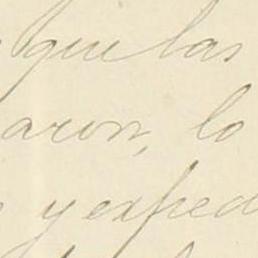 que las
aron, lo
y exped